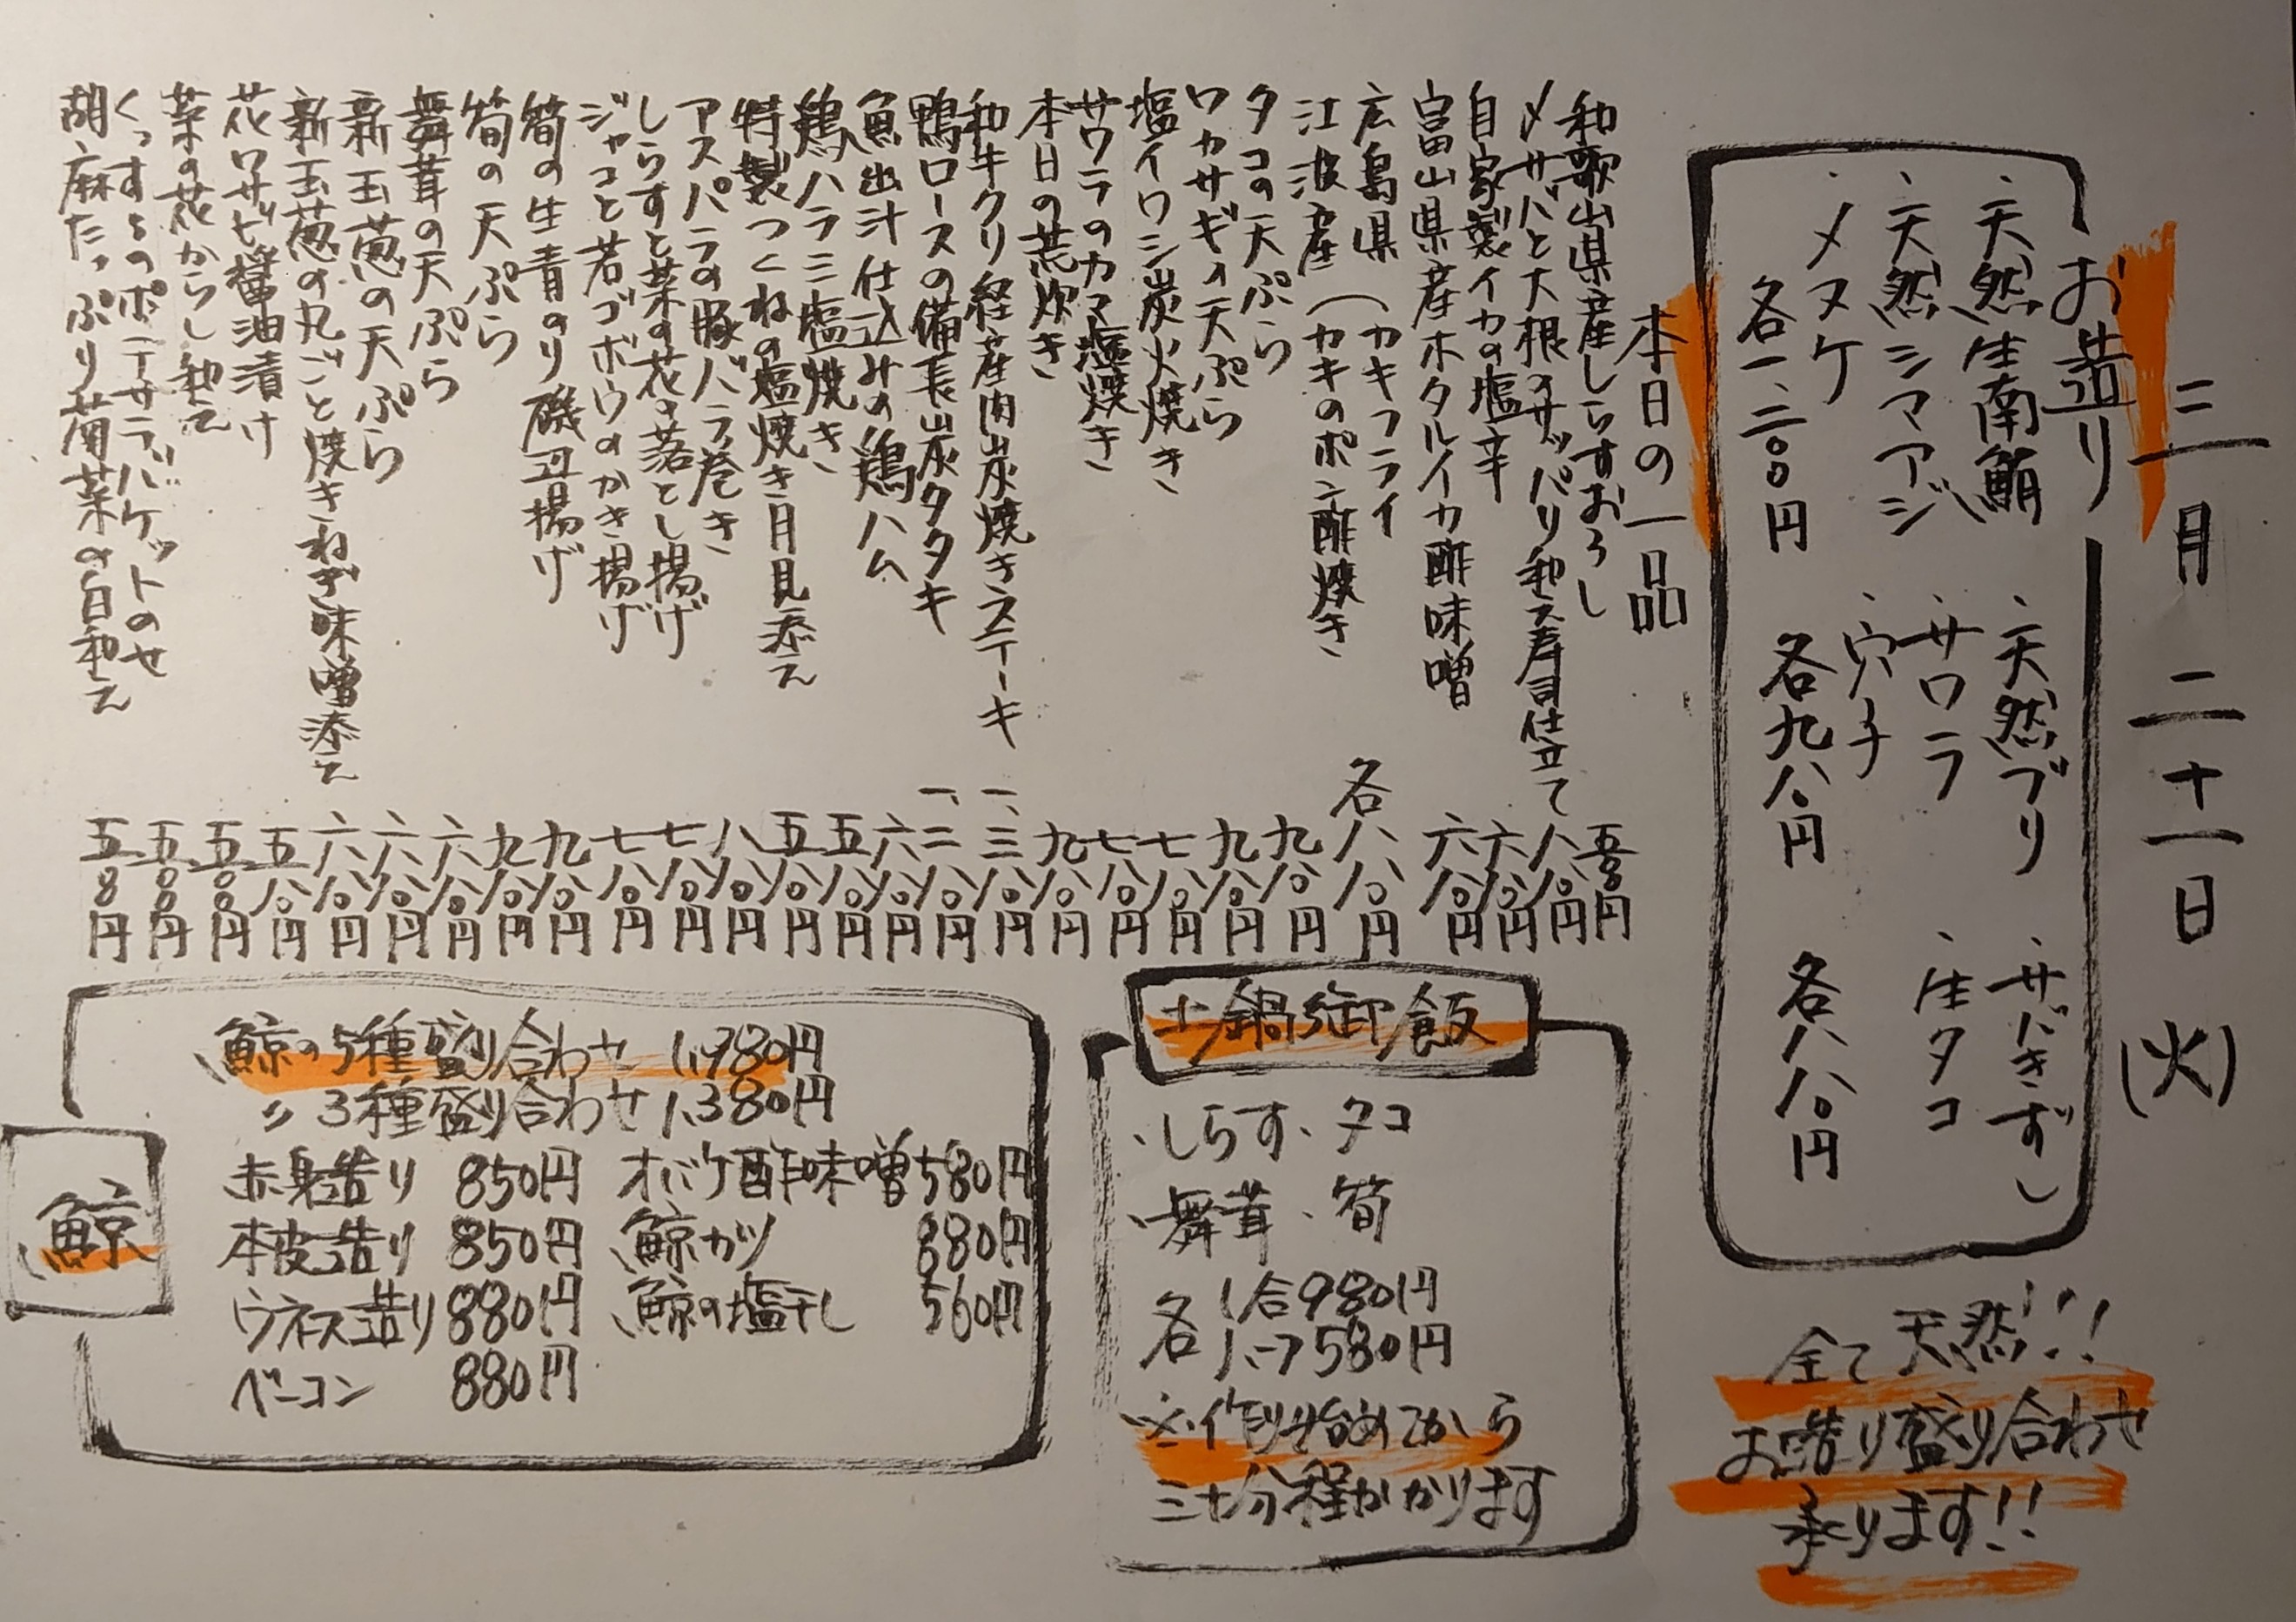 三月二十一日(火)
お造り
、天然生南鮪
、天然シマアジ
、メヌケ
各一、二〇〇円
、天然ブリ
、サワラ
、穴子
各九八〇円
、サバきずし
、生タコ
各八八〇円
全て天然!!
お造り盛り合わせ
承ります!!
本日の一品
和歌山県産しらすおろし 五〇〇円
〆サバと大根のサッパリ和え寿司仕立て 八八〇円
自家製イカの塩辛 六八〇円
富山県産ホタルイカ酢味噌 六八〇円
広島県
江波産(カキフライ
カキのポン酢焼き 各八八〇円
タコの天ぷら 九八〇円
ワカサギの天ぷら 九八〇円
塩イワシ炭火焼き 七八〇円
サワラのカマ塩焼き 七八〇円
本日の荒炊き 九八〇円
和牛クリ経産肉炭焼きステーキ 一、三八〇円
鴨ロースの備長炭タタキ 一、二八〇円
魚出汁仕込みの鶏ハム 六八〇円
鶏ハラミ塩焼き 五八〇円
特製つくねの塩焼き月見添え 五八〇円
アスパラの豚バラ巻き 八八〇円
しらすと菜の花の落とし揚げ 七八〇円
ジャコと若ゴボウのかき揚げ 七八〇円
筍の生青のり磯辺揚げ 九八〇円
筍の天ぷら 九八〇円
舞茸の天ぷら 六八〇円
新玉葱の天ぷら 六八〇円
新玉葱の丸ごと焼きねぎ味噌添え 六八〇円
花ワサビ醤油漬け 五八〇円
菜の花からし和え 五〇〇円
くっすぅのポテサラバケットのせ 五〇〇円
胡麻たっぷり菊菜の白和え 五〇〇円
土鍋御飯
・しらす・タコ
・舞茸・筍
各1合980円
各ハーフ580円
※作り始めてから
三十分程かかります
鯨
鯨の5種盛り合わせ 1,980円
〃3種盛り合わせ 1,380円
赤身造り 850円 オバケ酢味噌 580円
本皮造り 850円 鯨カツ 880円
ウネス造り 880円 鯨の塩干し 560円
ベーコン 880円